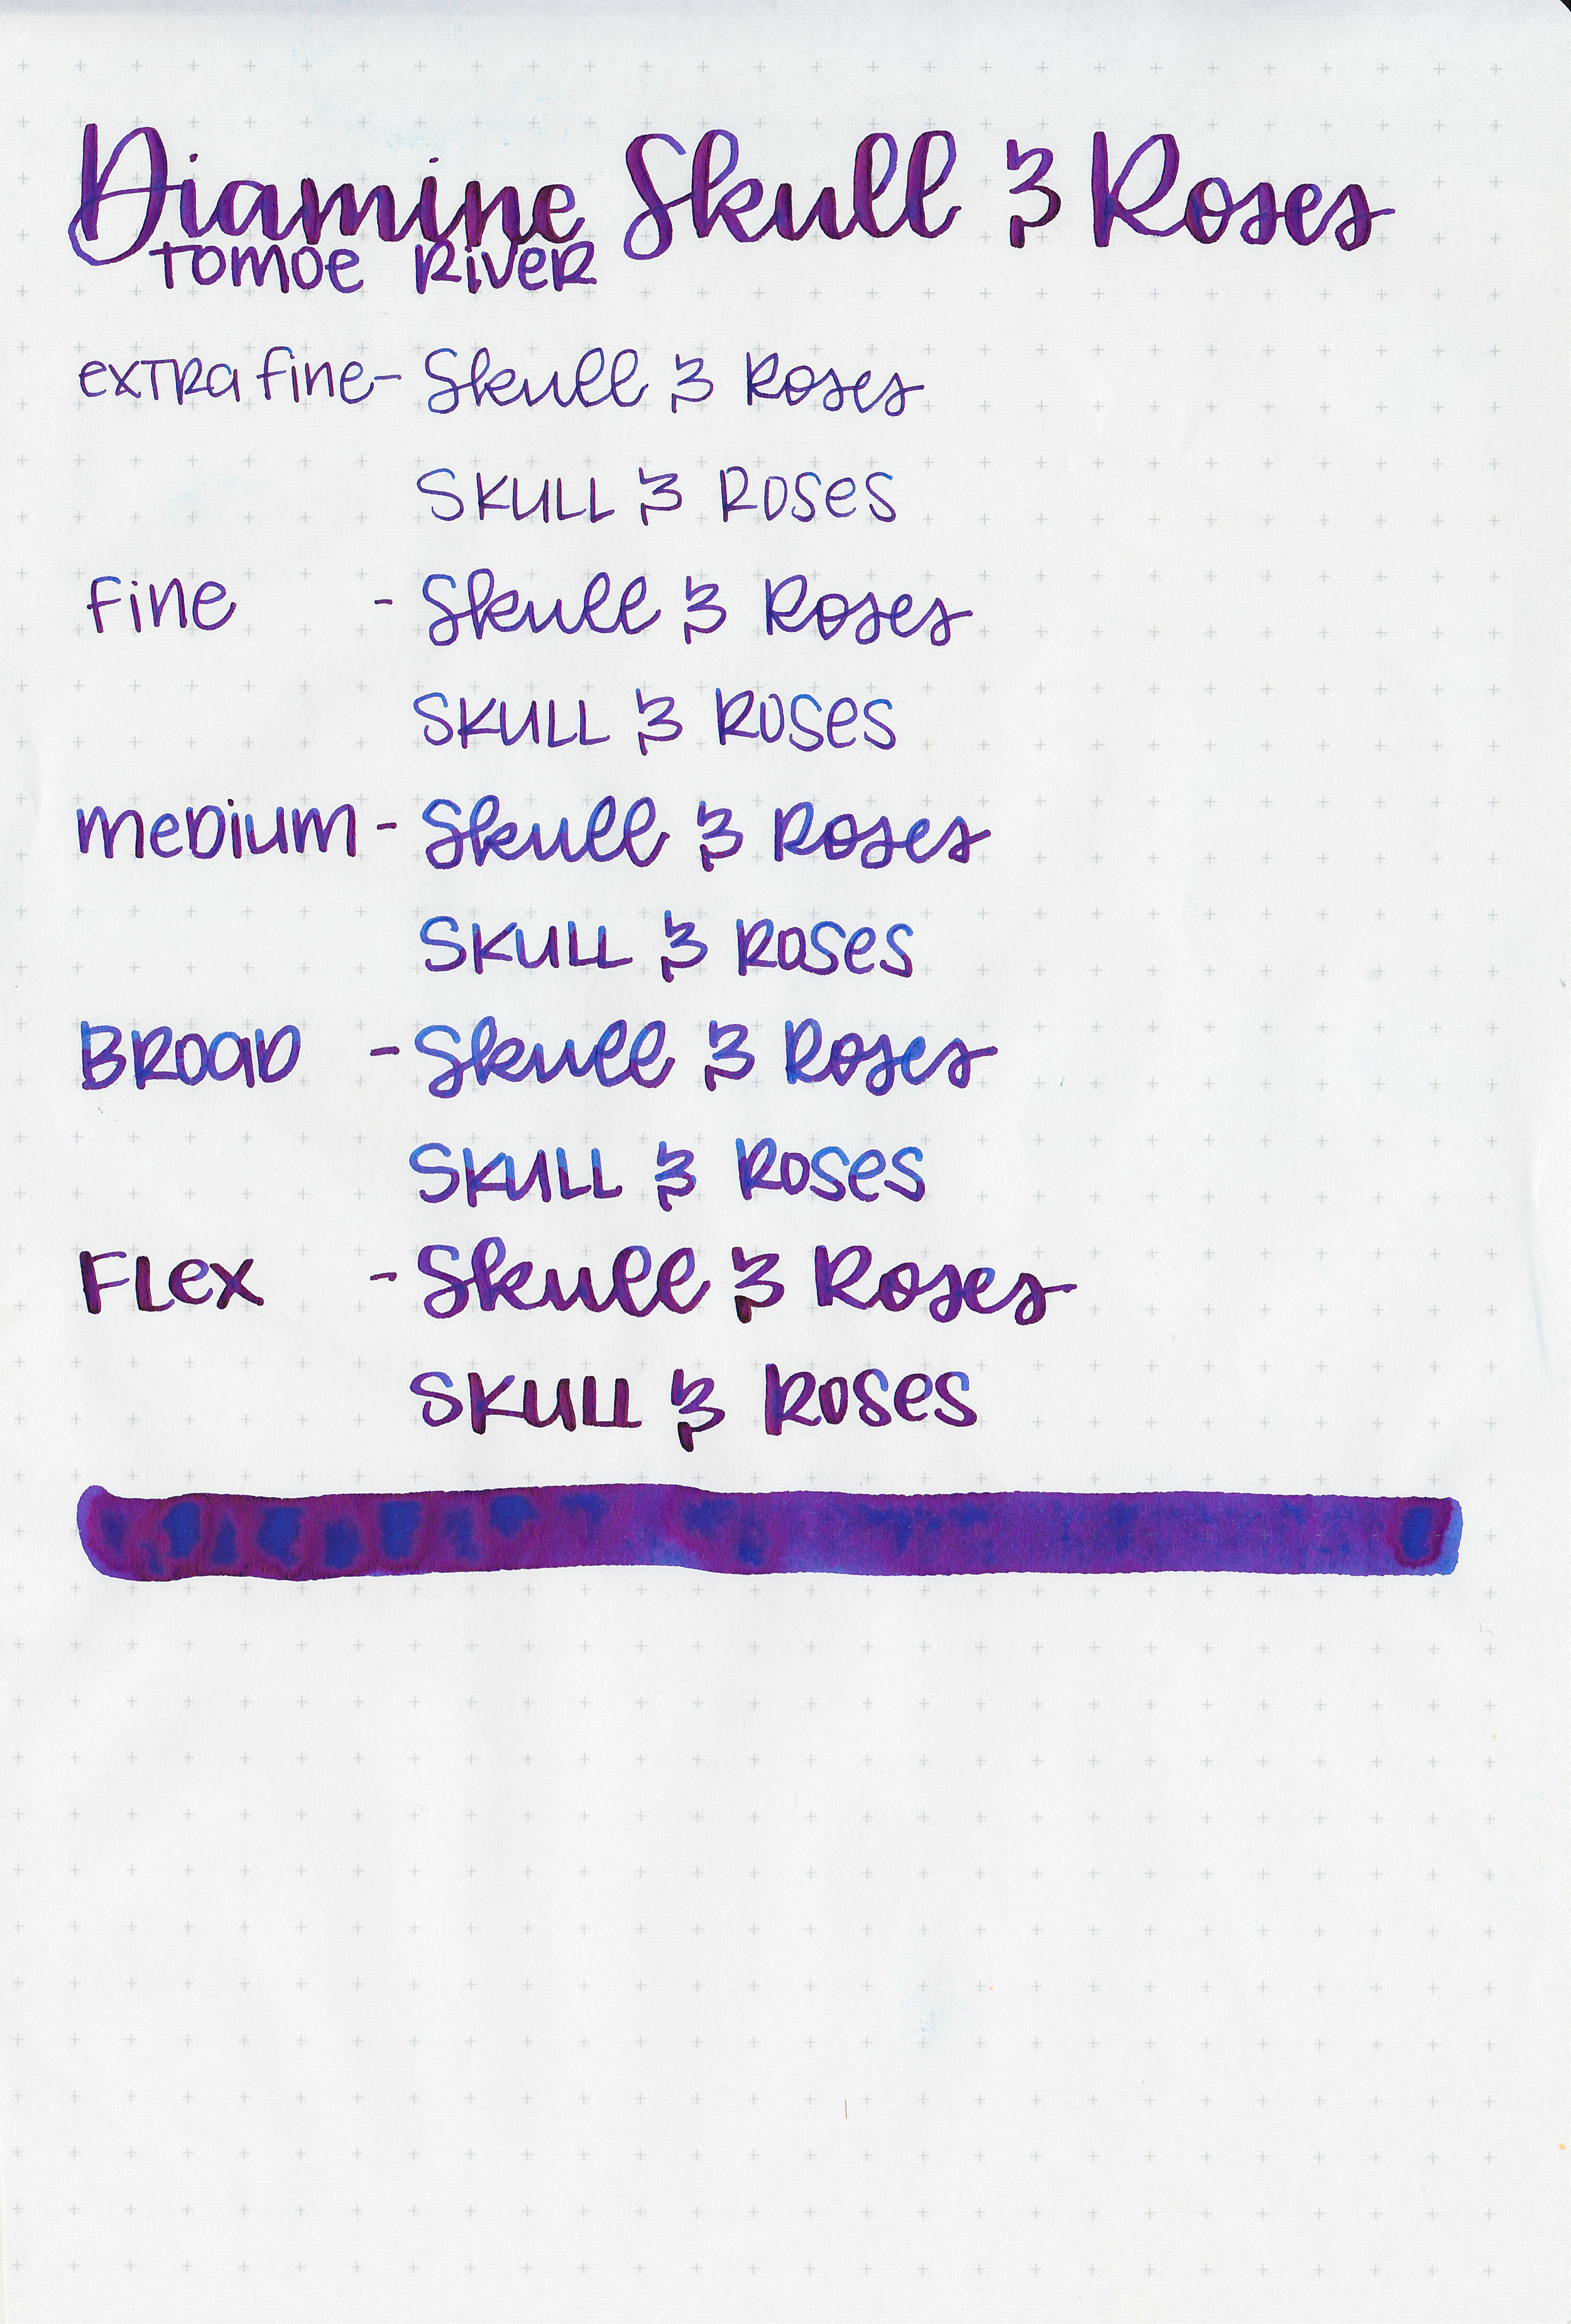 Diamine Skull & Roses
TOMOE RiVeR
exTRa fine- Skull & Roses
SKULL & ROSes
fine - Skull & Roses
SKULL & ROSes
meDium - Skull & Roses
SKULL & ROSes
BROaD - Skull & Roses
SKULL & ROSes
FLex - Skull & Roses
SKULL & ROSes